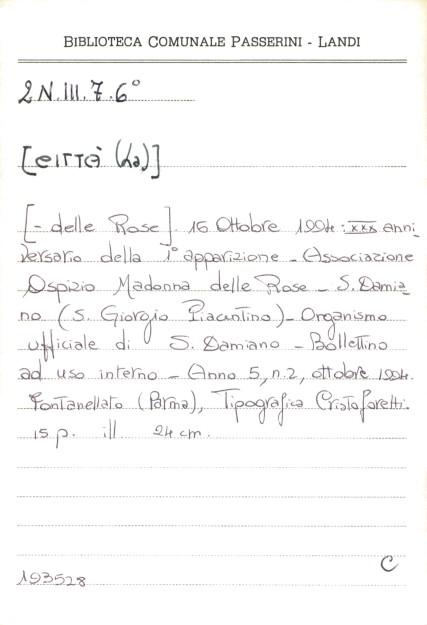 BIBLIOTECA COMUNALE PASSERINI - LANDI
2N.III.7.6°
[CITTÀ (La)]
[- delle Rose]. 16 Ottobre 1994: XXX anni
versario della 1° apparizione - Associazione
Ospizio Madonna delle Rose - S. Damia
no (S. Giorgio Piacentino) - Organismo
ufficiale di S. Damiano - Bollettino
ad uso interno - Anno 5, n.2, ottobre 1994.
Fontanellato (Parma), Tipografica Cristoforetti.
15 p. ill 24 cm.
C
193528